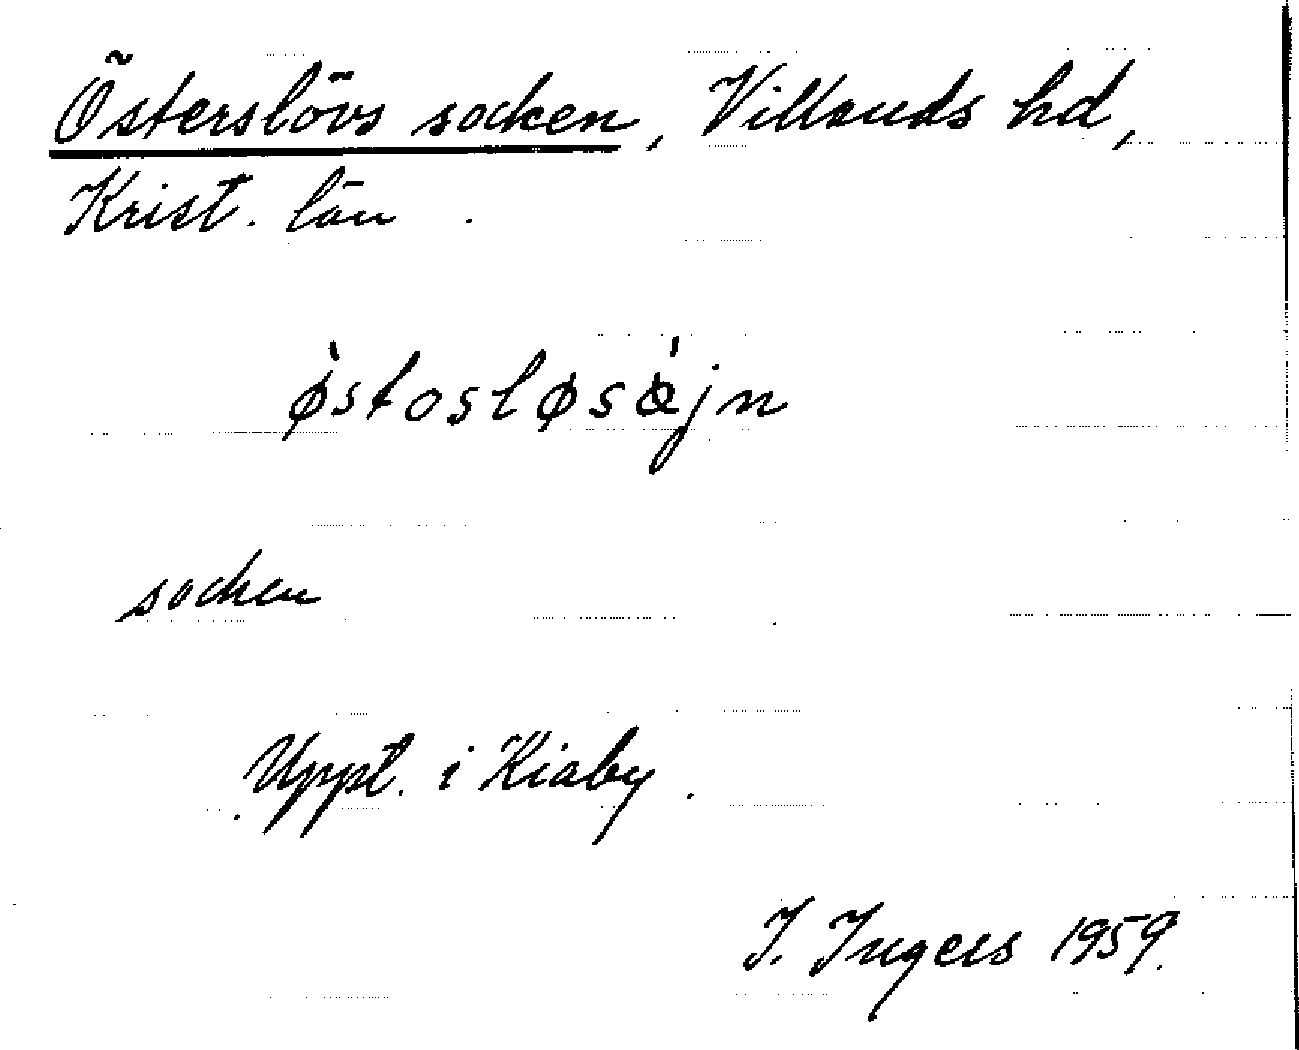 Österslövs socken, Villands hd,
Krist. län.
ø̀stosløsὰjn
socken
Uppt. i Kiaby.
I. Ingers 1959.